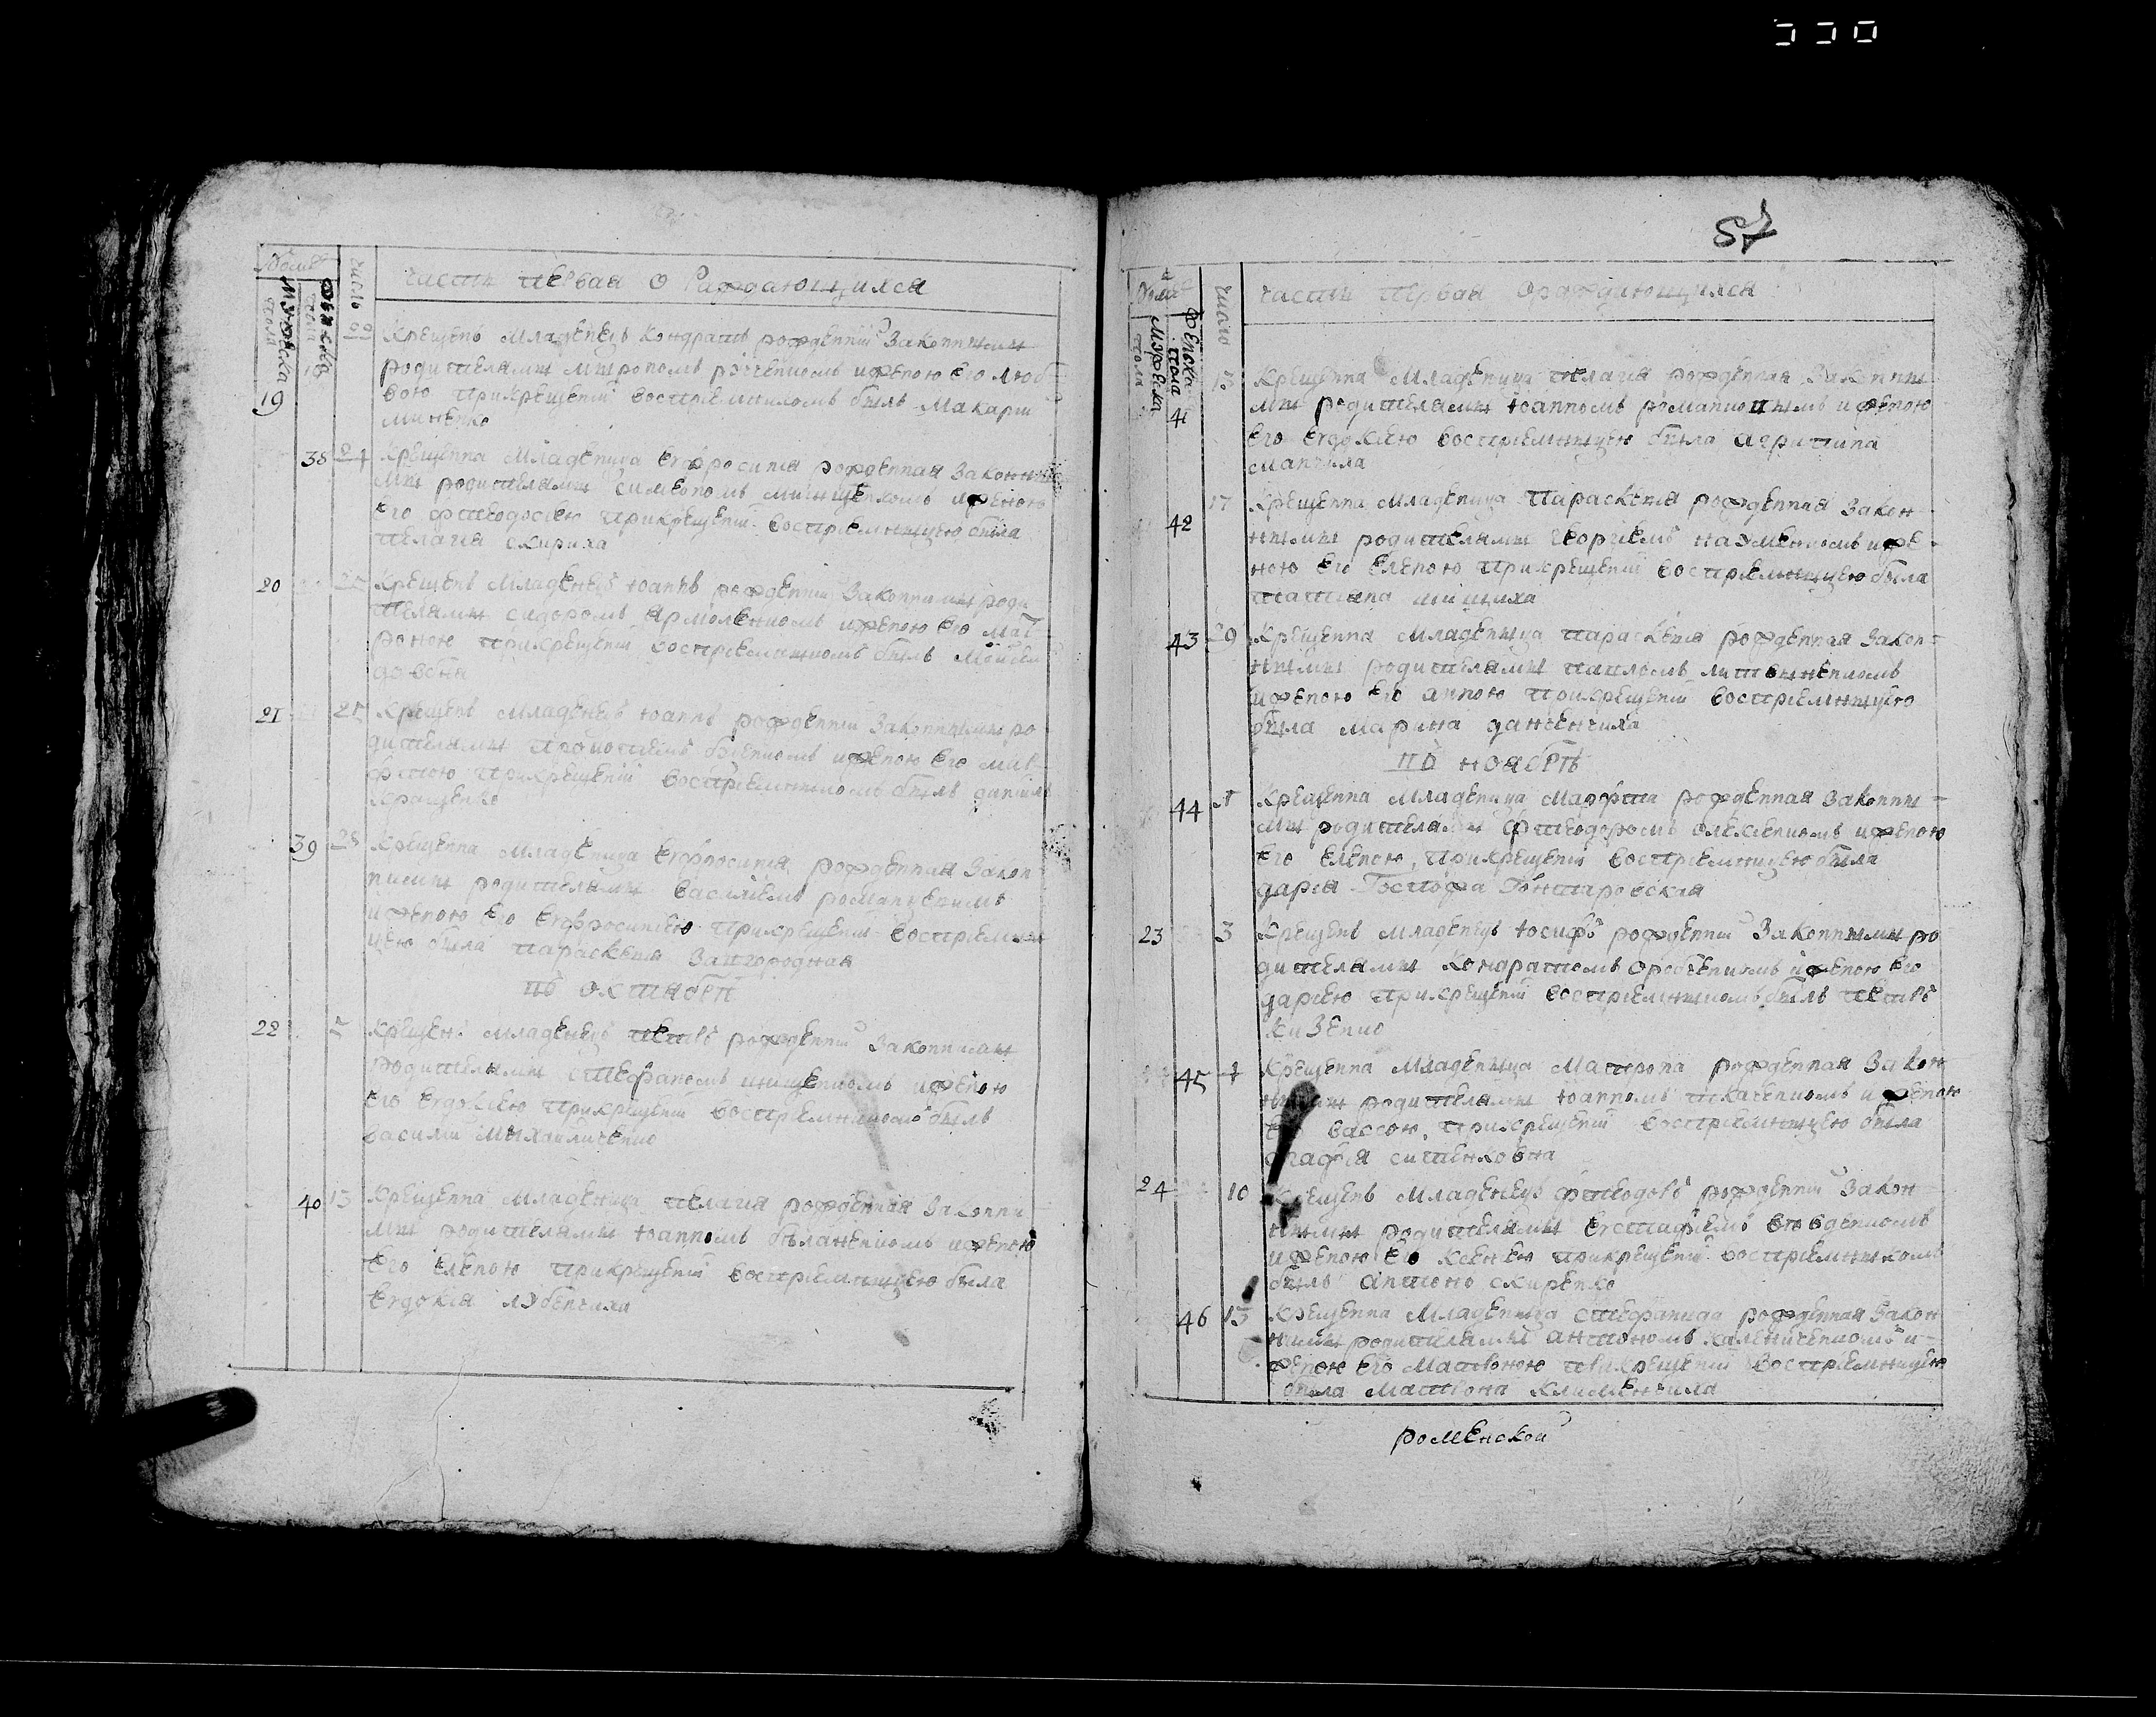 330
часть первая о Раждающихся
число
мужеска пола
женска пола
22 Крещенъ младенецъ Кондратъ рожденнiй Законними
родителями и женою его Люб-
19 вою при крещенiи воспрiемникомъ былъ Макарiй
миненко
38 24 Крещенна младеница Евфросинiя рожденная Законни
ми родителями Симеономъ и женою
его Феодосiею при крещенiи воспрiемницею была
Пелагiя Скириха
20 25 Крещенъ младенецъ Iоаннъ рожденнiй Законними роди
телями Сидоромъ Ярмоленкомъ и женою его Мат
роною при крещенiи воспрiемникомъ былъ Мойсей
довбня
21 25 Крещенъ младенецъ Iоаннъ рожденнiй Законними ро
дителями Прокопiемъ и женою его
при крещенiи воспрiемникомъ былъ Данiилъ
Кращенко
39 28 Крещенна младеница Евфросинiя рожденная Закон
ними родителями Василiемъ романченкомъ
и женою его Евфросинiею при крещенiи воспрiемни
цею была Параскевiя Загородная
по октябрь
22 5 Крещенъ младенецъ Петръ рожденнiй Законними
родителями Стефаномъ нищенкомъ и женою
его Евдокiею при крещенiи воспрiемникомъ былъ
Василiй Михайличенко
40 13 Крещенна младеница Пелагiя рожденная Законни
ми родителями Iоанномъ биланенкомъ и женою
его Еленою при крещенiи воспрiемницею была
Евдокiя лубенчиха
57
часть первая о раждающихся
число
мужеска пола
женска пола
13 Крещенна младеница Пелагiя рожденная Законни
41 ми родителями Iоанномъ и женою
его Евдокiею воспрiемницею была Агрипина
17 Крещенна младеница Параскевiя рожденная Закон
42 ними родителями Георгiемъ науменкомъ и же
ною его Еленою при крещенiи воспрiемницею была
Татiяна
43 29 Крещенна младеница Параскевiя рожденная Закон
ними родителями Павломъ литвиненкомъ
и женою его Анною при крещенiи воспрiемницею
была Марина данченчиха
по ноябрь
44 1 Крещенна младеница Марфа рожденная Законни
ми родителями Феодоромъ Олексенкомъ и женою
его Еленою, при крещенiи воспрiемницею была
Дарiя Госпожа Гонтаровская
23 3 Крещенъ младенецъ Iосифъ рожденнiй Законними ро
дителями Кондратомъ Оробченкомъ и женою его
Дарiею при крещенiи воспрiемникомъ былъ Петръ
Кизенко
45 7 Крещенна младеница Матрона рожденная Закон
ними родителями Iоанномъ ткаченкомъ и женою
Вассою, при крещенiи воспрiемницею была
Агафiя ситенковна
24 10 Крещенъ младенецъ Феодоръ рожденнiй Закон
ними родителями Евстафiемъ вовденкомъ
и женою его Ксенiею при крещенiи воспрiемникомъ
былъ Антонъ скиренко
46 13 Крещенна младеница Стефанида рожденная Закон
ними родителями Антономъ Калениченкомъ и
женою его Матроною при крещенiи воспрiемницею
была Матрона Клименчиха
роменской